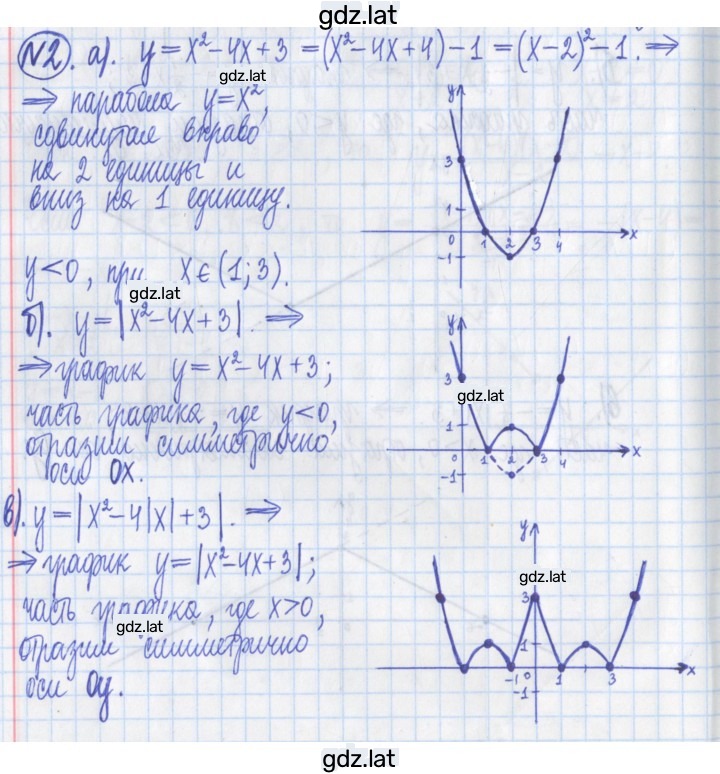 gdz.lat
№2. а). y = x² - 4x + 3 = (x² - 4x + 4) - 1 = (x - 2)² - 1. ⇒
gdz.lat
⇒ парабола y = x²,
сдвинутая вправо
на 2 единицы и
вниз на 1 единицу.
y
gdz.lat
3
1
0 1 2 3 4 x
-1
y < 0, при x ∈ (1; 3).
gdz.lat
б). y = |x² - 4x + 3|. ⇒
⇒ график y = x² - 4x + 3;
часть графика, где y < 0,
отразим симметрично
оси Ox.
y
3
gdz.lat
1
0 1 2 3 4 x
-1
в). y = |x² - 4|x| + 3|. ⇒
⇒ график y = |x² - 4x + 3|;
часть графика, где x > 0,
gdz.lat
отразим симметрично
оси Oy.
y
gdz.lat
3
1
-1 0 1 3 x
-1
gdz.lat